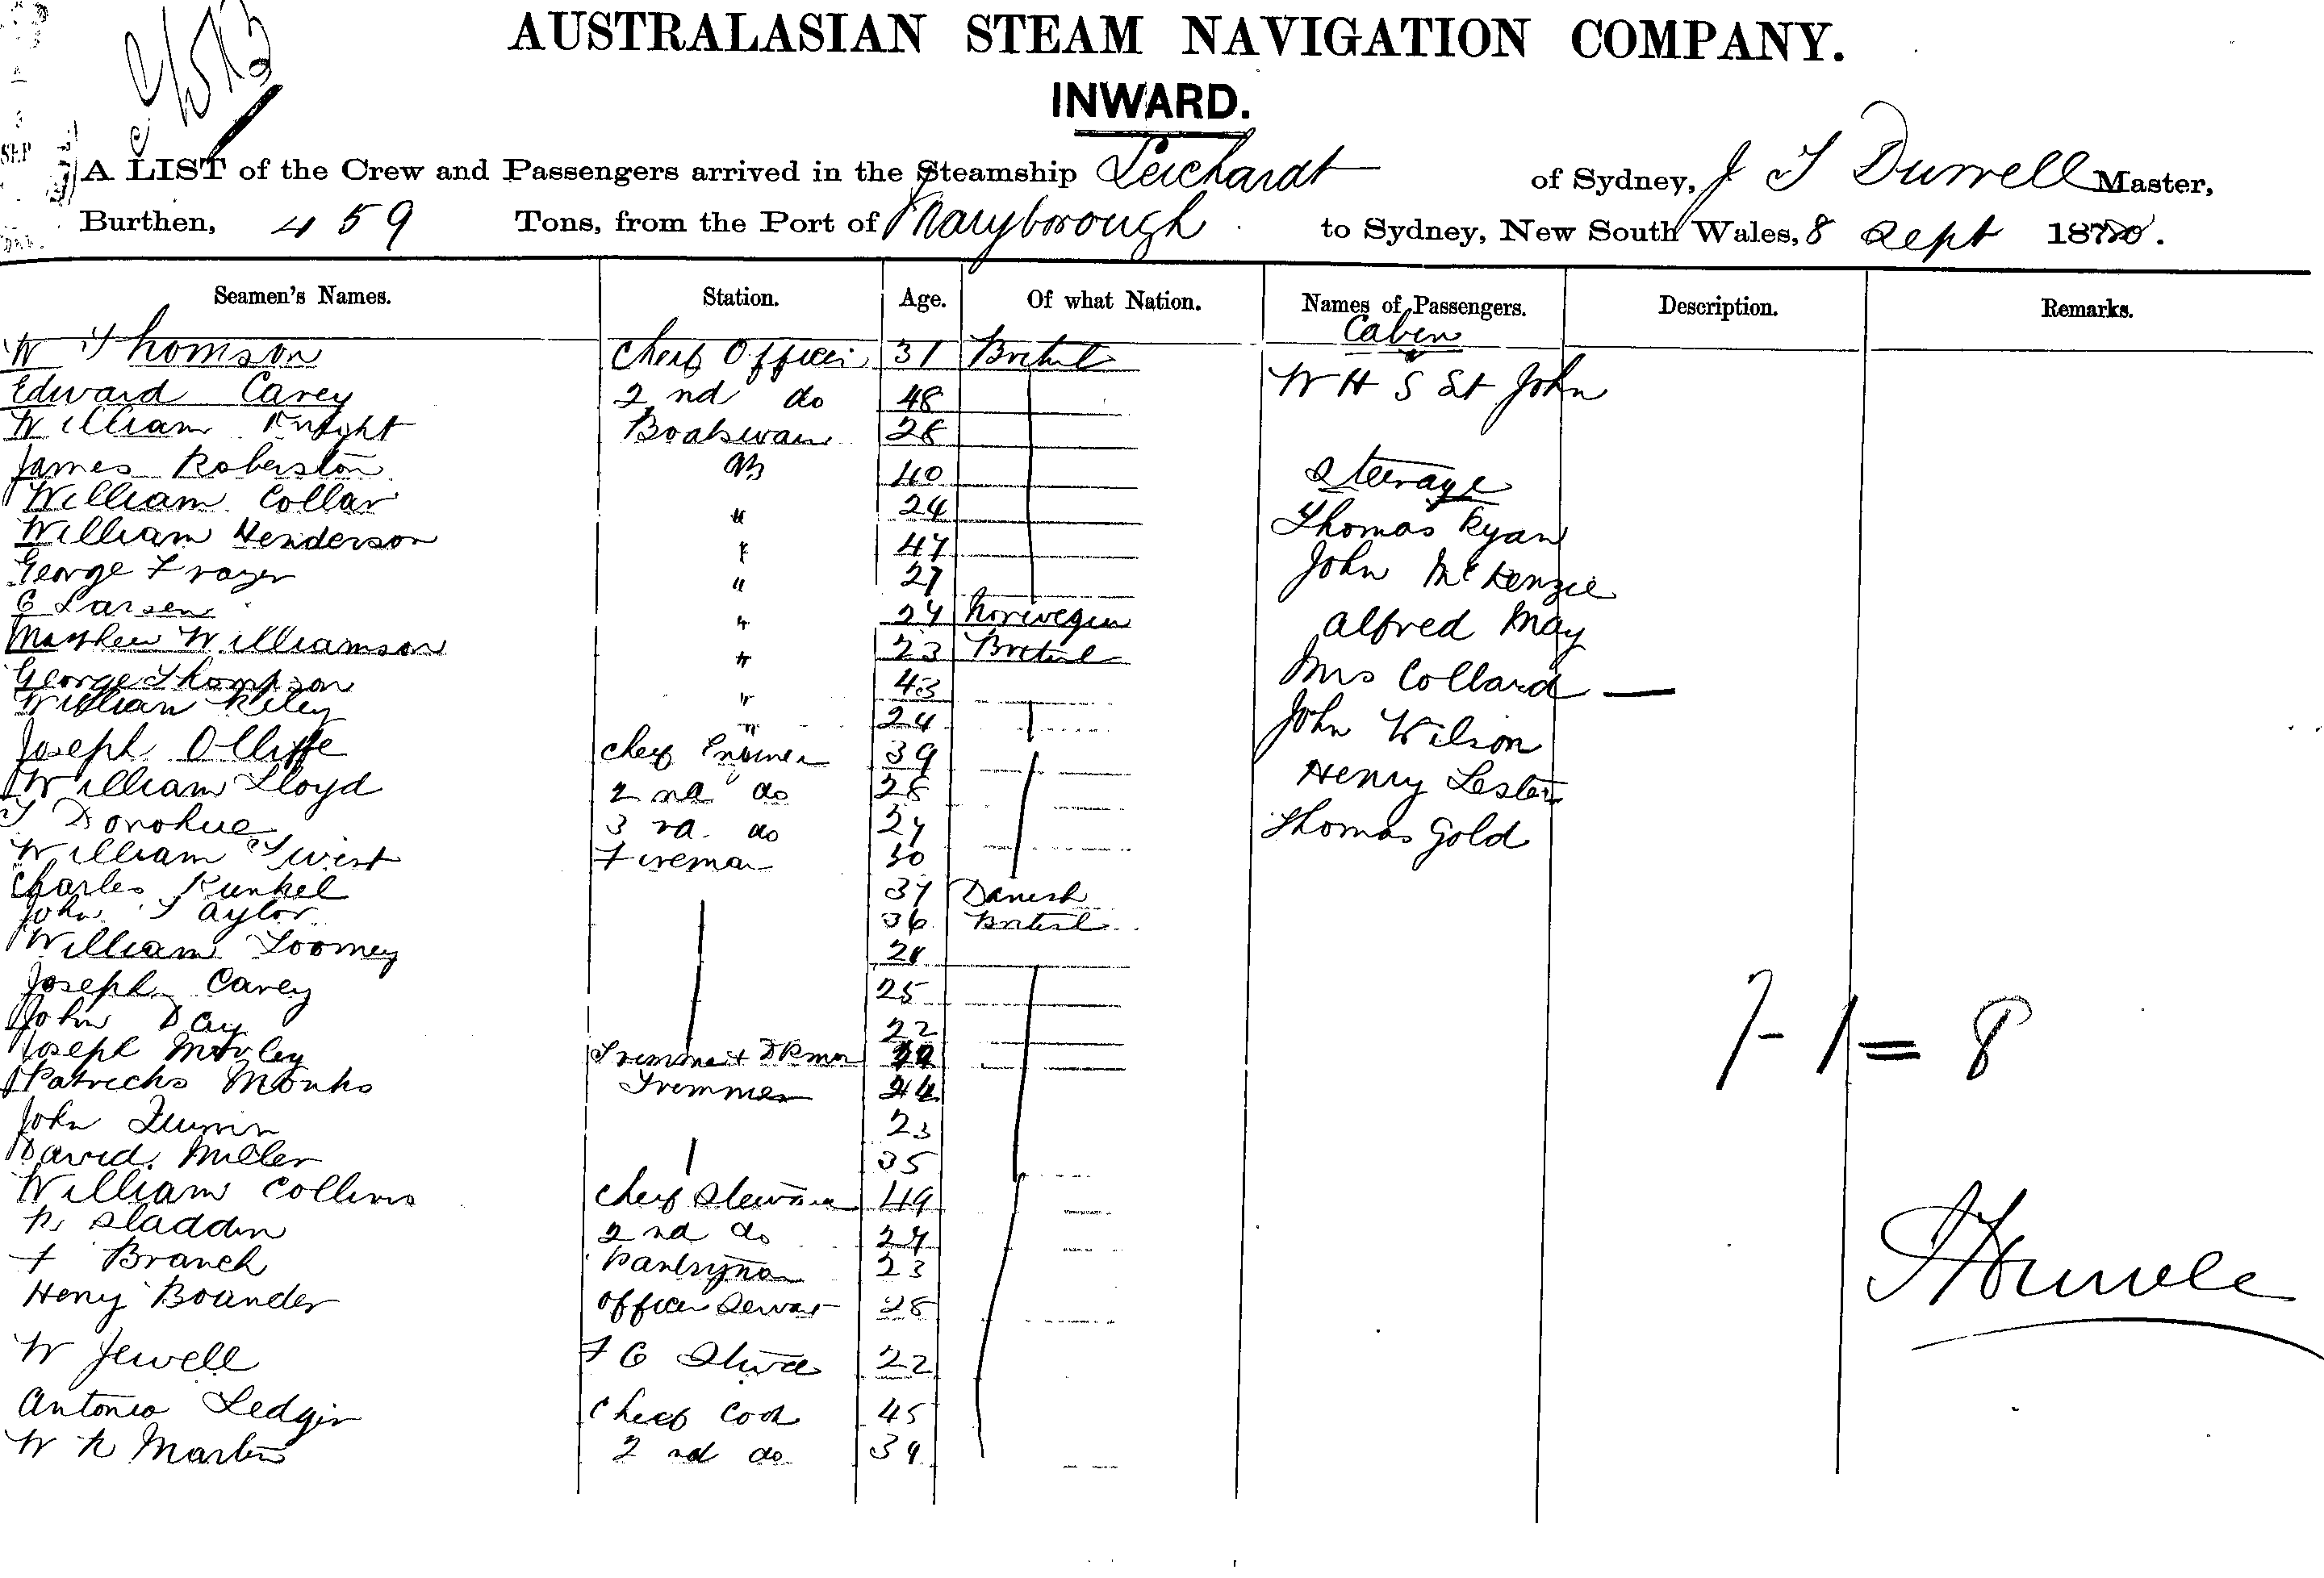 AUSTRALASIAN STEAM NAVIGATION COMPANY.
INWARD.
A LIST of the Crew and Passengers arrived in the Steamship Leichardt of Sydney, J T Durrell Master,
Burthen, 459 Tons, from the Port of Maryborough to Sydney, New South Wales, 8 Sept 1880.
Seamen's Names. Station. Age. Of what Nation. Names of Passengers. Description. Remarks.
Cabin
W Thomson Cheif Officer 31 British
Edward Carey 2nd do 48 W H S St John
William Knight Boatswain 28
James Roberston AB 40 Steerage
William Collar " 24
William Henderson " 47 Thomas Ryan
George Frazer " 27 John McKenzie
C Larsen " 24 Norwegian
Mathew Williamson " 23 British Alfred May
George Thompson " 43 Mrs Collard —
William Riley " 24 John Wilson
Joseph Olliffe Cheif Engineer 39
William Lloyd 2nd do 28 Henry Lester
T Donohue 3rd do 27 Thomas Gold
William Twist Fireman 30
Charles Kunkel 37 Danish
John Taylor 36 British
William Toomey 28
Joseph Carey 25
John Day 22
Joseph Morley Trimmer & DKman
Patricks Monks Trimmer 24
John Dunn 23
David Miller 35
7 - 1 = 8
William Collins Cheif Steward 49
R Sladden 2nd do 27
F Branch Pantryman 23
Henry Bounder Officer Servant 28
W Jewell F C Stwd 22
Antonio Ledger Cheif Cook 45
W R Martin 2nd do 39